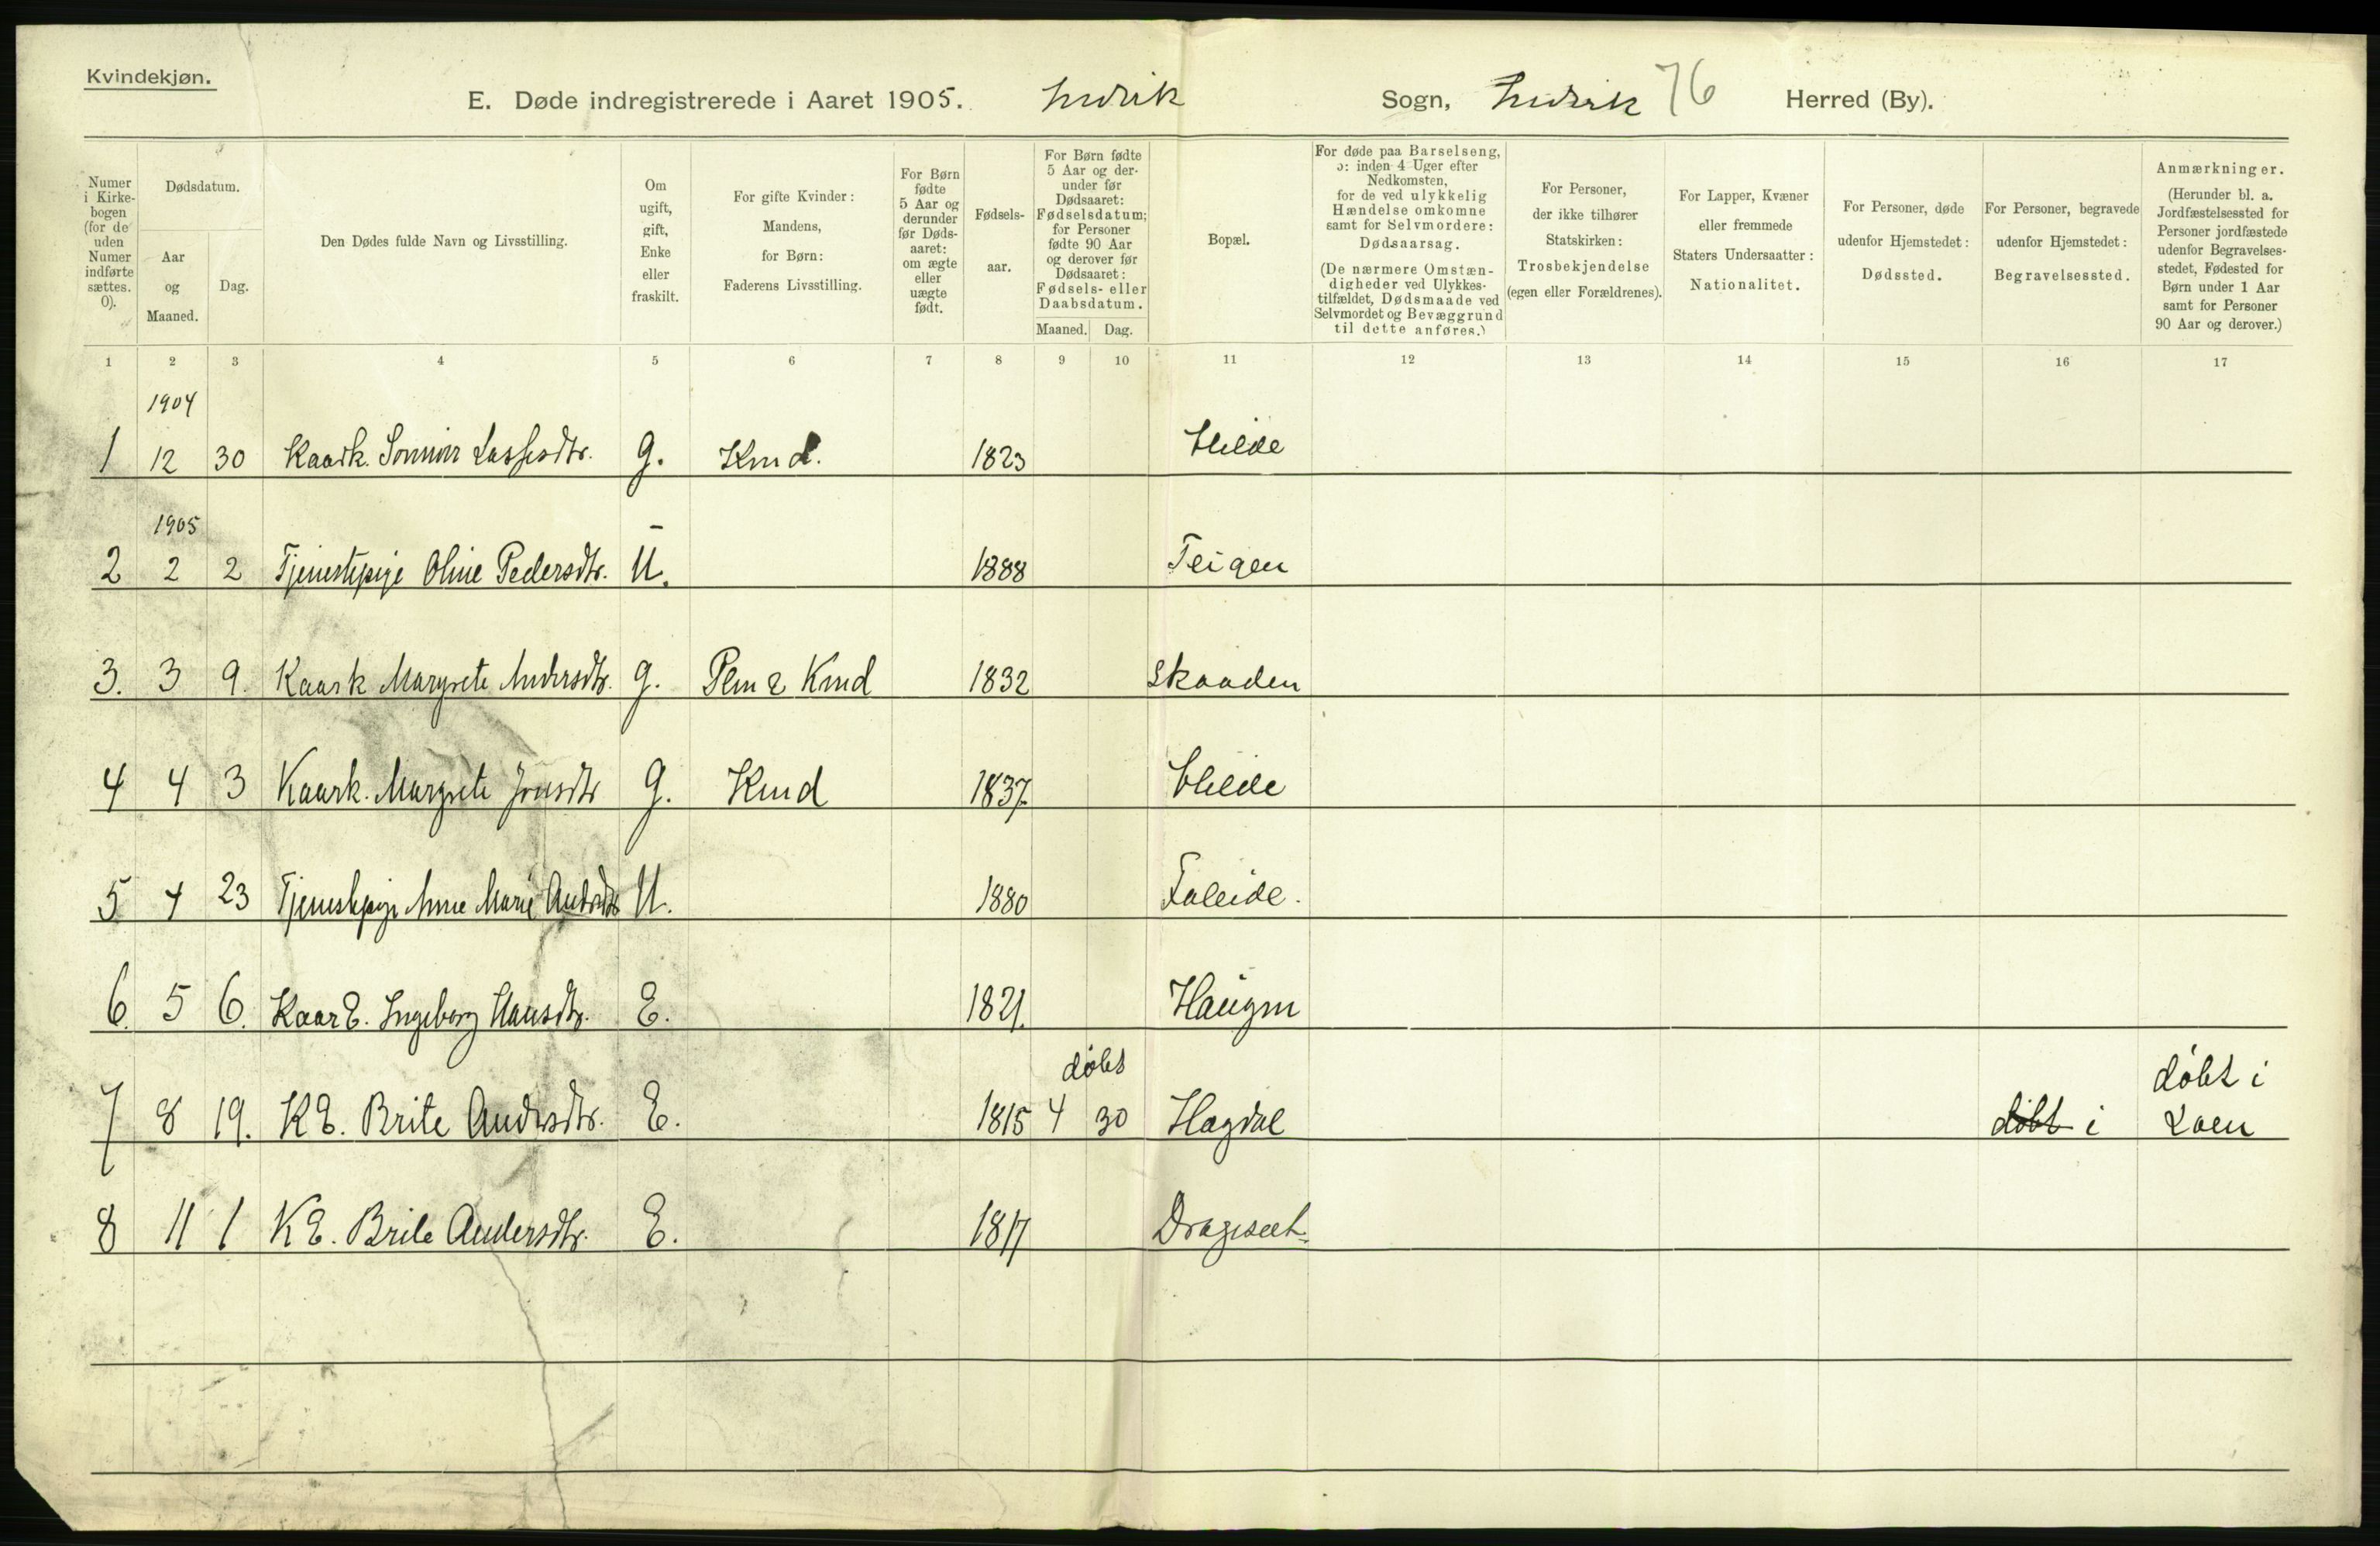 Kvindekjøn.
E. Døde indregistrerede i Aaret 1905. Indvik Sogn, Indvik 76 Herred (By).
Numer i Kirkebogen (for de uden Numer indførte sættes. 0).
Dødsdatum.
Aar og Maaned.
Dag.
Den Dødes fulde Navn og Livsstilling.
Om ugift, gift, Enke eller fraskilt.
For gifte Kvinder: Mandens, for Børn: Faderens Livsstilling.
For Børn fødte 5 Aar og derunder før Dødsaaret: om ægte eller uægte født.
Fødselsaar.
For Børn fødte 5 Aar og derunder før Dødsaaret: Fødselsdatum; for Personer fødte 90 Aar og derover før Dødsaaret: Fødsels- eller Daabsdatum.
Maaned. Dag.
Bopæl.
For døde paa Barselseng, ɔ: inden 4 Uger efter Nedkomsten, for de ved ulykkelig Hændelse omkomne samt for Selvmordere: Dødsaarsag.
(De nærmere Omstændigheder ved Ulykkestilfældet, Dødsmaade ved Selvmordet og Bevæggrund til dette anføres.)
For Personer, der ikke tilhører Statskirken: Trosbekjendelse (egen eller Forældrenes).
For Lapper, Kvæner eller fremmede Staters Undersaatter: Nationalitet.
For Personer, døde udenfor Hjemstedet: Dødssted.
For Personer, begravede udenfor Hjemstedet: Begravelsessted.
Anmærkninger.
(Herunder bl. a. Jordfæstelsessted for Personer jordfæstede udenfor Begravelsesstedet, Fødested for Børn under 1 Aar samt for Personer 90 Aar og derover.)
1 2 3 4 5 6 7 8 9 10 11 12 13 14 15 16 17
1904
1 12 30 Kaark. Lassesdtr. G. Kmd. 1823 Hilde
1905
2 2 2 Tjenestepige Oline Pedersdtr. U. 1888 Teigen
3. 3 9. Kaark Margrete Andersdtr. G. Kmd 1832 Skaaden
4 4 3 Kaark. Margrete Jonsdtr G. Kmd 1837 Hilde
5 4 23 Tjenestepige Anne Marie Andersdtr U. 1880 Faleide.
6. 5 6. Kaar E. Ingeborg Hansdtr. E. 1821. Haugen
døbt
døbt i
7 8 19. K E. Brite Andersdtr. E. 1815 4 30 Hagdal døbt i Loen
8 11 1 K E. Brite Andersdtr. E. 1817 Drageset.